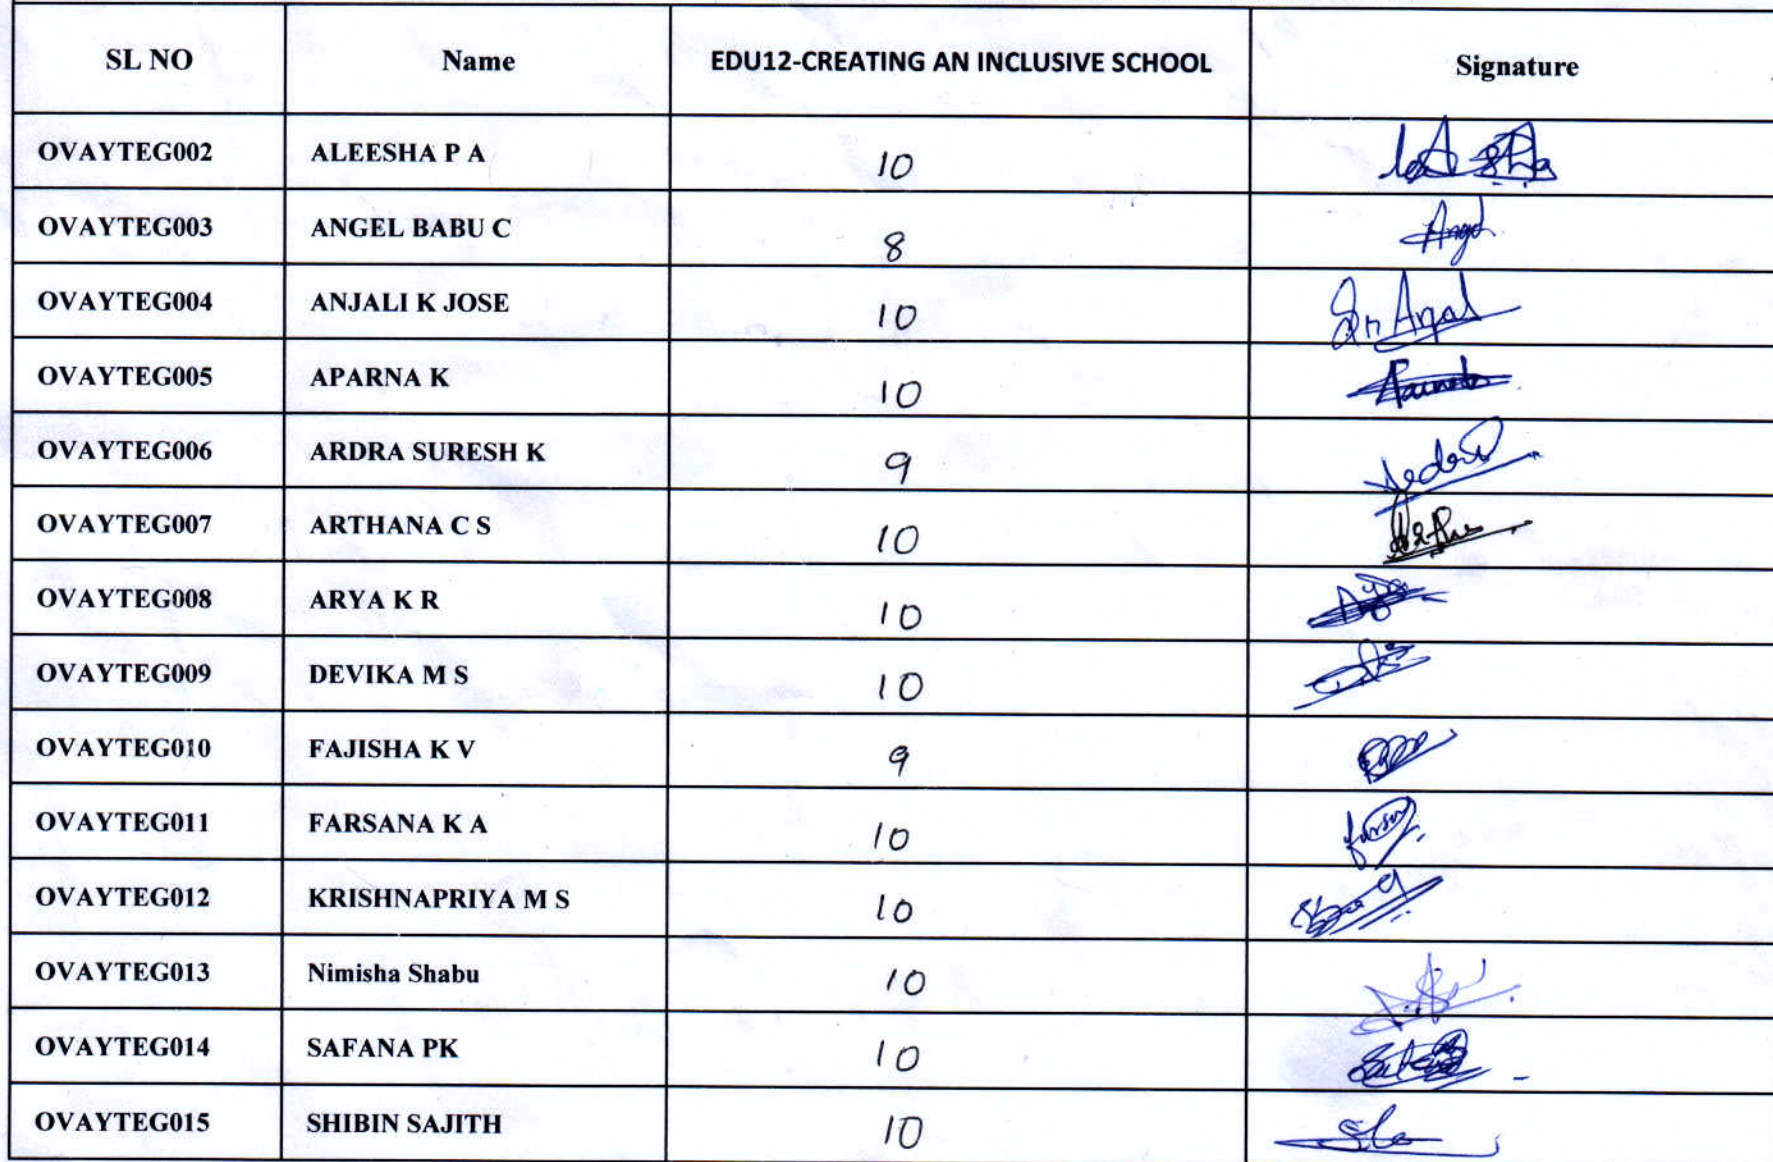 SL NO Name EDU12-CREATING AN INCLUSIVE SCHOOL Signature
OVAYTEG002 ALEESHA P A 10
OVAYTEG003 ANGEL BABU C 8 Angel
OVAYTEG004 ANJALI K JOSE 10
OVAYTEG005 APARNA K 10
OVAYTEG006 ARDRA SURESH K 9
OVAYTEG007 ARTHANA C S 10
OVAYTEG008 ARYA K R 10
OVAYTEG009 DEVIKA M S 10
OVAYTEG010 FAJISHA K V 9
OVAYTEG011 FARSANA K A 10
OVAYTEG012 KRISHNAPRIYA M S 10
OVAYTEG013 Nimisha Shabu 10
OVAYTEG014 SAFANA PK 10
OVAYTEG015 SHIBIN SAJITH 10